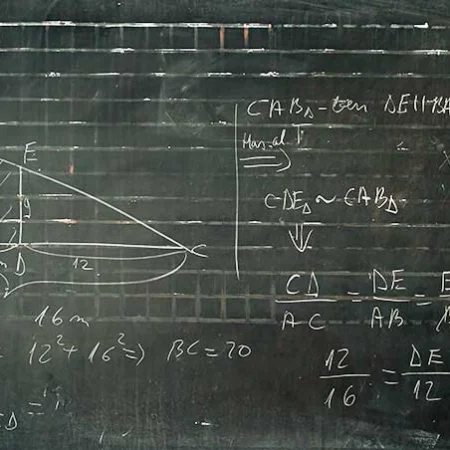 E
9
D
12
C
16 m
12² + 16² ⇒ BC = 20
D =
CAB△-ben DE||BA
⇒
CDE△ ~ CAB△
⇓
CD/AC = DE/AB = E
12/16 = DE/12